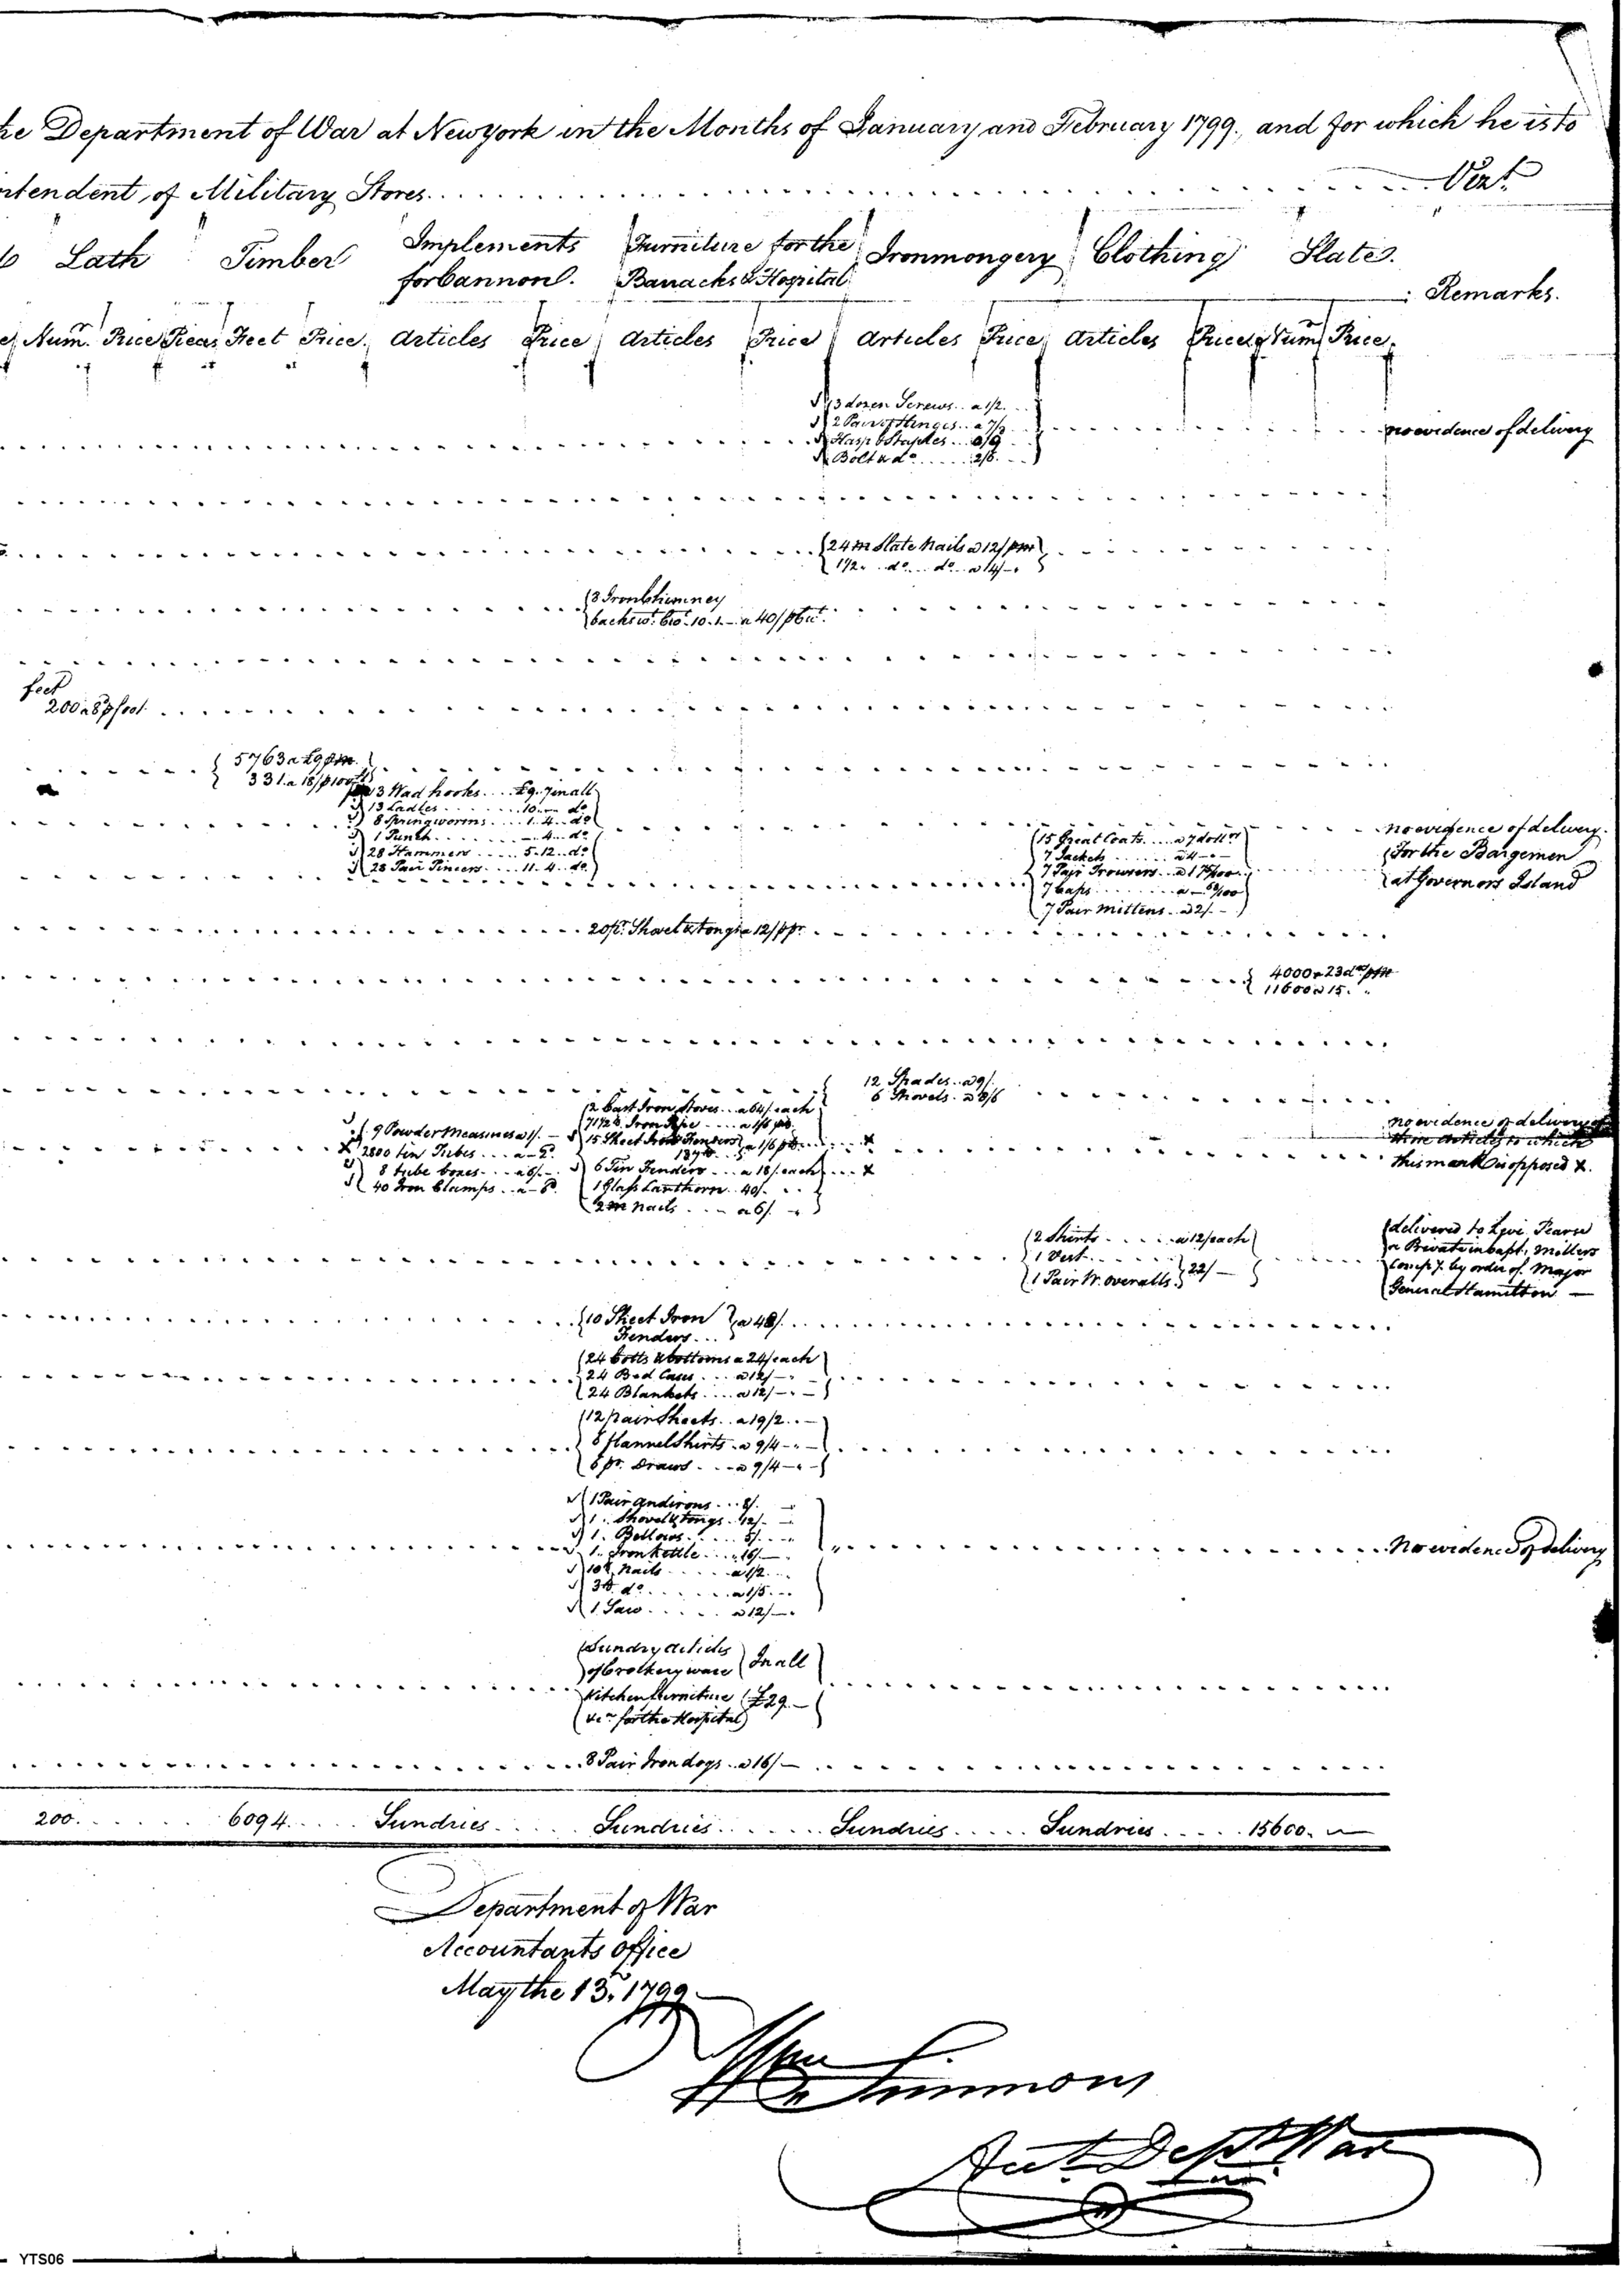 he Department of War at New York in the Months of January and February 1799, and for which he is to
ntendent of Military Stores. Vizt.
Lath Timber Implements for Cannon. Furniture for the Barracks & Hospital Ironmongery Clothing Slate. Remarks.
Numr. Price Pieces Feet Price. Articles Price Articles Price Articles Price Articles Price Numr Price.
3 dozen Screws.. a 1/2
2 Pair of Hinges.. a 7/
Hasp & Staples... a/9
Bolt & do ..... 2/6.
no evidence of delivery
24 m Slate Nails a 12/ pm
1 1/2 .. do .. do .. a 14/-
3 Iron Chimney
backs wt. Cwt. 10.1.- a 40/ p Cwt.
feet
200 a 8 p foot
5763 a £9 pm
331. a 18/ p 100
13 Wad hooks.... £9.7 in all
13 Ladles ....... 10.-- do
8 Springworms... 1.4.. do
1 Punch ....... -.4.. do
28 Hammers ..... 5.12.. do
28 Pair Pincers.... 11.4.. do
no evidence of delivery.
15 Great Coats.... a 7 dollrs
7 Jackets ....... a 4 --
7 Pair Trowsers.. a 1 75/100
7 Caps ......
7 Pair Mittens.. a 2/.-
For the Bargemen
at Governors Island
20 pr. Shovel & tongs a 12/ p pr.
4000 a 23 drs pm
11600 a 15. "
12 Spades.. a 9/.
6 Shovels. a 8/6
2 Cast Iron Stoves... a 64/. each
71 1/2 lb. Iron Pipe .... a 1/6 pd.
9 Powder Measures a 1/. -
15 Sheet Iron Fenders a 1/6 pd. x
2800 tin Tubes ... a-2d.
8 tube boxes... a 6/.-
6 Tin Fenders ... a 18/. each ... x
40 Iron Clamps .. a-8d.
1 Glass Lanthorn.. 40/.
2 m nails .... a 6/.
no evidence of delivery of
those articles to which
this mark is opposed x.
2 Shirts ..... a 12/ each
1 Vest....
1 Pair W. overalls. 22/-
delivered to Levi Pearse
a Private in Capt. Millers
Compy. by order of Major
General Hamilton -
10 Sheet Iron
Fenders... a 48/.
24 Cotts & bottoms a 24/ each
24 Bed Cases ... a 12/-
24 Blankets .... a 12/-
12 pair Sheets.. a 19/2.
8 flannel Shirts. a 9/4-
6 pr. Draws ... a 9/4-
1 Pair andirons... 8/.
1.. Shovel & tongs. 12/.
1. Bellows ..... 5/.
1.. Iron kettle... 16/.
10 lb. Nails ..... a 1/2.
3 lb. do ....... a 1/5.
1 Saw..... a 12/-.
Sundry articles
of Crockery ware In all
Kitchen furniture £29.-
&c. for the Hospital
No evidence of delivery
8 Pair Iron dogs.. a 16/-
200. 6094. Sundries Sundries Sundries Sundries 15600.
Department of War
Accountants Office
May the 13. 1799
Wm Simmons
Acct. Dept. War
YTS06